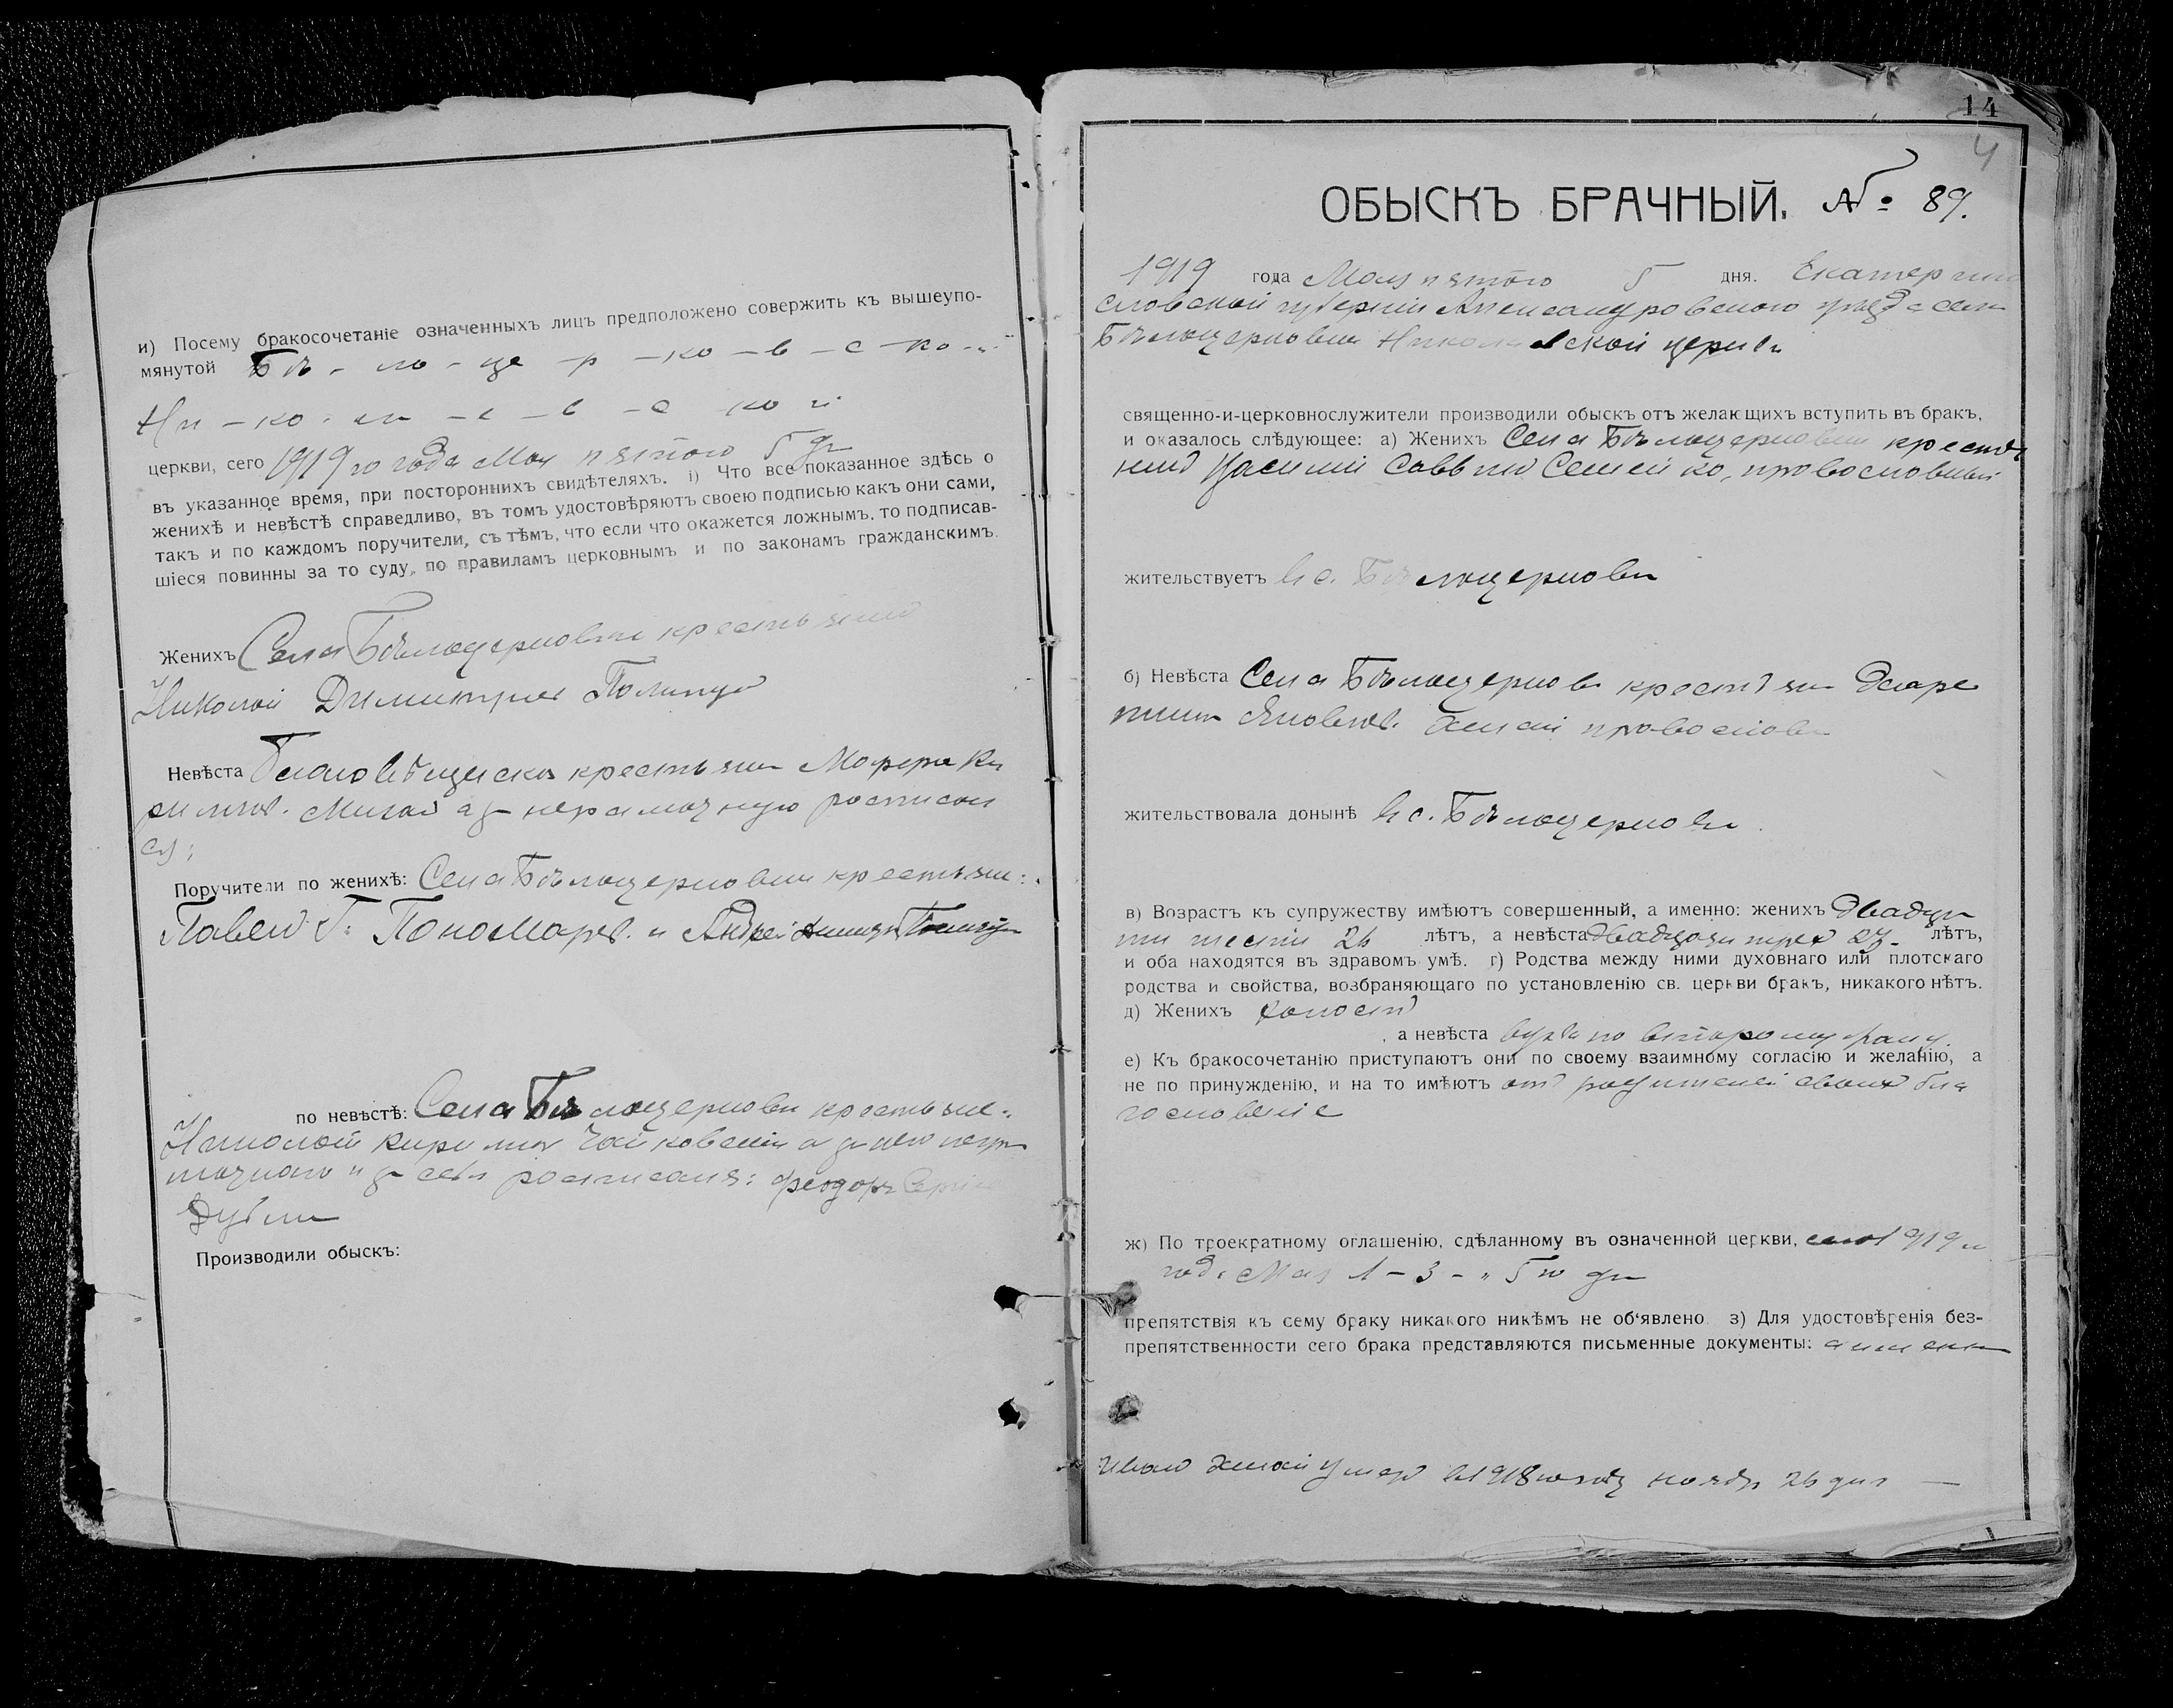 и) Посему бракосочетаніе означенныхъ лицъ предположено совержить къ вышеупо-
мянутой Бѣ - ло - це - р - ко - в - с - ко - й
Ни - ко - ла - е - в - с ко й
церкви, сего 1919 го года Мая пятого 5 дн
въ указанное время, при постороннихъ свидѣтеляхъ. і) Что все показанное здѣсь о
женихѣ и невѣстѣ справедливо, въ томъ удостовѣряютъ своею подписью какъ они сами,
такъ и по каждомъ поручители, съ тѣмъ, что если что окажется ложнымъ, то подписав-
шіеся повинны за то суду, по правиламъ церковнымъ и по законамъ гражданскимъ.
Женихъ Села Бѣлоцерковки крестьянин
Николай Димитриев
Невѣста крестьян
росписал
ся;
Поручители по женихѣ: Села Бѣлоцерковки крестьяне:
Павел Г. Пономарев. и Андрей
по невѣстѣ: Села Бѣлоцерковки крестьяне:
Николай Кирилов Чайковский а за него негра
мотного и за себя росписался: Феодоръ
Производили обыскъ:
14
4
ОБЫСКЪ БРАЧНЫЙ. № 89.
1919 года Мая пятого 5 дня. Екатерино
словской губерніи Александровского уезда села
Бѣлоцерковки Николаевской церкви
священно-и-церковнослужители производили обыскъ отъ желающихъ вступить въ бракъ,
и оказалось слѣдующее: а) Женихъ Села Бѣлоцерковки крестья
нин Савв Семейко, православный
жительствуетъ в с. Бѣлоцерковки
б) Невѣста Села Бѣлоцерковки крестьян
Яковлев. православн
жительствовала донынѣ в с. Бѣлоцерковки
в) Возрастъ къ супружеству имѣютъ совершенный, а именно: женихъ двадца
ти шести 26 лѣтъ, а невѣста двадцати трех 23 лѣтъ,
и оба находятся въ здравомъ умѣ. г) Родства между ними духовнаго или плотскаго
родства и свойства, возбраняющаго по установленію св. церкви бракъ, никакого нѣтъ.
д) Женихъ холост
, а невѣста вдова по второму браку.
е) Къ бракосочетанію приступаютъ они по своему взаимному согласію и желанію, а
не по принужденію, и на то имѣютъ от родителей своих бла
гословеніе
ж) По троекратному оглашенію, сдѣланному въ означенной церкви, сего 1919 г
года Мая 1 - 3 - и 5 го дн
препятствія къ сему браку никакого никѣмъ не об‘явлено. з) Для удостовѣренія без-
препятственности сего брака представляются письменные документы:
умер в 1918 году ноября 26 дня